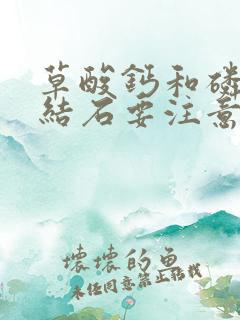 草酸鈣和磷
結石要注意
壞壞的魚
未經同意禁止轉載